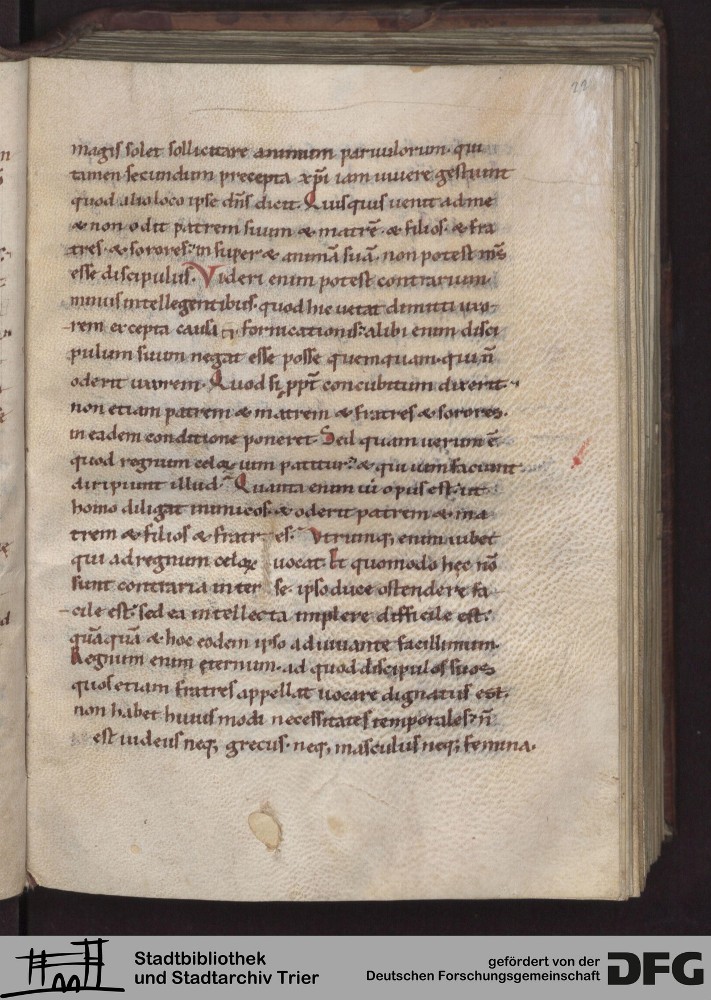 22
magis solet sollicitare animum paruulorum· qui
tamen secundum precepta xp̄i iam uiuere gestiunt
quod alio loco ipse dn̄s dicit. Quisquis uenit ad me
& non odit patrem suum & matrē· & filios· & fra
tres· & sorores· insuper & animā suā· non potest m̄s
esse discipulus. Videri enim potest contrarium
minus intellegentibus· quod hic uetat dimitti uxo
rem excepta causa fornicationis· alibi enim disci
pulum suum negat esse posse quemquam· qui n̄
oderit uxorem· Quod si ppt̄ concubitum dixerit·
non etiam patrem & matrem & fratres & sorores·
in eadem conditione poneret· Sed quam uerum ē
quod regnum celoꝝ uim patitur· & qui uim faciunt
diripiunt illud· Quanta enim ui opus est· ut
homo diligat inimicos· & oderit patrem & ma
trem & filios & fratres· Vtrumq; enim iubet
qui ad regnum celoꝝ uocat· Et quomodo hec nō
sunt contraria inter se· ipso duce ostendere fa
cile est· sed ea intellecta implere difficile est·
quāquā & hoc eodem ipso adiuuante facillimum·
Regnum enim ęternum· ad quod discipulos suos
quos etiam fratres appellat uocare dignatus est·
non habet huius modi necessitates temporales· n̄
est iudeus neq; grecus· neq; masculus neq; femina·
Stadtbibliothek
und Stadtarchiv Trier
gefördert von der
Deutschen Forschungsgemeinschaft
DFG